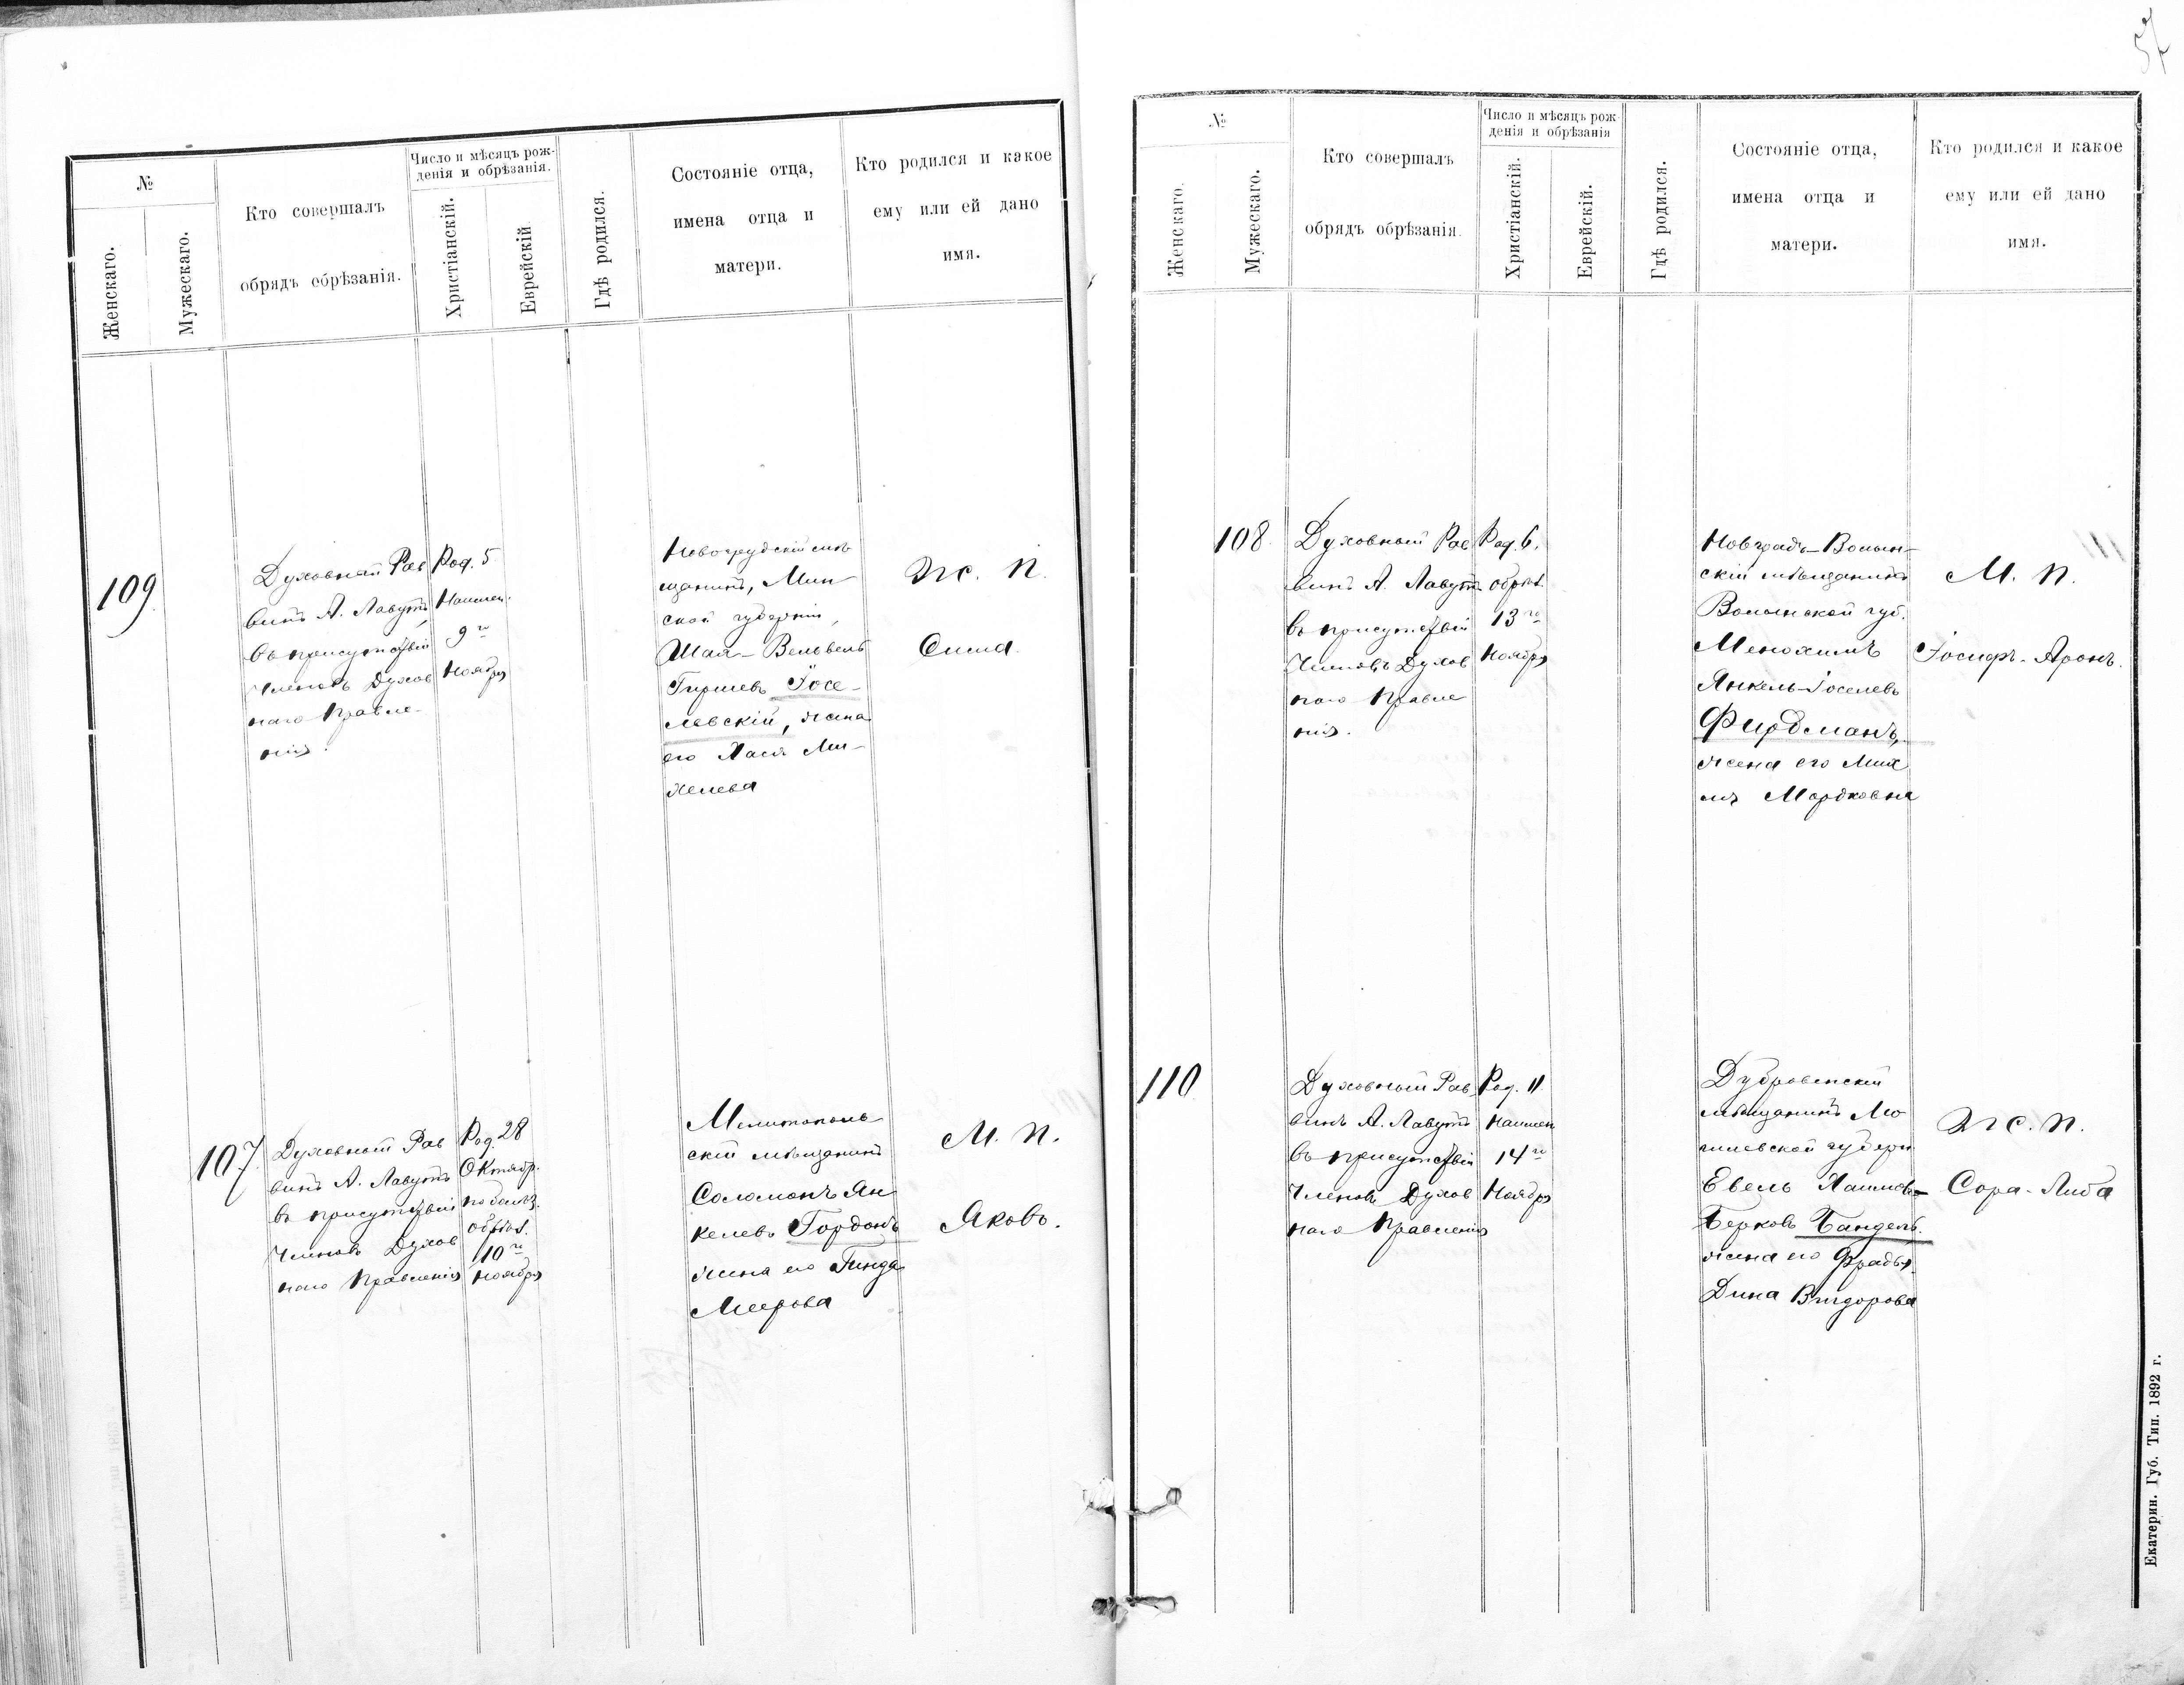 57
№
Женскаго.
Мужескаго.
Кто совершалъ
обрядъ обрѣзанія.
Число и мѣсяцъ рож-
денія и обрѣзанія.
Христіанскій.
Еврейскій
Гдѣ родился.
Состояніе отца,
имена отца и
матери.
Кто родился и какое
ему или ей дано
имя.
109
Духовный Рав
винъ А. Лавутъ
въ присутствіи
Членовъ Духов
наго Правле-
нія.
Род. 5
Наимен.
9го
Ноября
Новогрудскій мѣ
щанинъ, Мин
ской губерніи,
Шая-Вельвель
Гиршевъ Іосе-
левскій, жена
его Хася Ми-
хелева
Ж. П.
Сима.
107
Духовный Рав
винъ А. Лавутъ
въ присутствіи
Членовъ Духов
наго Правленія
Род. 28
Октябр.
по болѣз.
обрѣз.
10го
Ноября
Мелитополь
скій мѣщанинъ
Соломонъ Ян
келевъ Гордонъ
жена его Гинда
Меерова
М. П.
Яковъ.
№
Женскаго.
Мужескаго.
Кто совершалъ
обрядъ обрѣзанія.
Число и мѣсяцъ рож-
денія и обрѣзанія
Христіанскій.
Еврейскій.
Гдѣ родился.
Состояніе отца,
имена отца и
матери.
Кто родился и какое
ему или ей дано
имя.
108
Духовный Рав
винъ А. Лавутъ
въ присутствіи
Членовъ Духов
наго Правле
нія.
Род. 6.
обрѣз.
13го
Ноября
Новградъ-Волын-
скій мѣщанинъ
Волынской губ.
Менохимъ
Янкель-Іоселевъ
Фирдманъ,
жена его Мих
ля Мордковна
М. П.
Іосифъ-Аронъ.
110
Духовный Рав
винъ А. Лавутъ
въ присутствіи
Членовъ Духов
наго Правленія
Род. 11
Наимен
14го
Ноября
Дубровенскій
мѣщанинъ Мо
гилевской губерн
Евель Хаимъ-
Берковъ Бандель.
жена его Фрадья
Дина Вигдорова
Ж. П.
Сора-Либа
Екатерин. Губ. Тип. 1892 г.